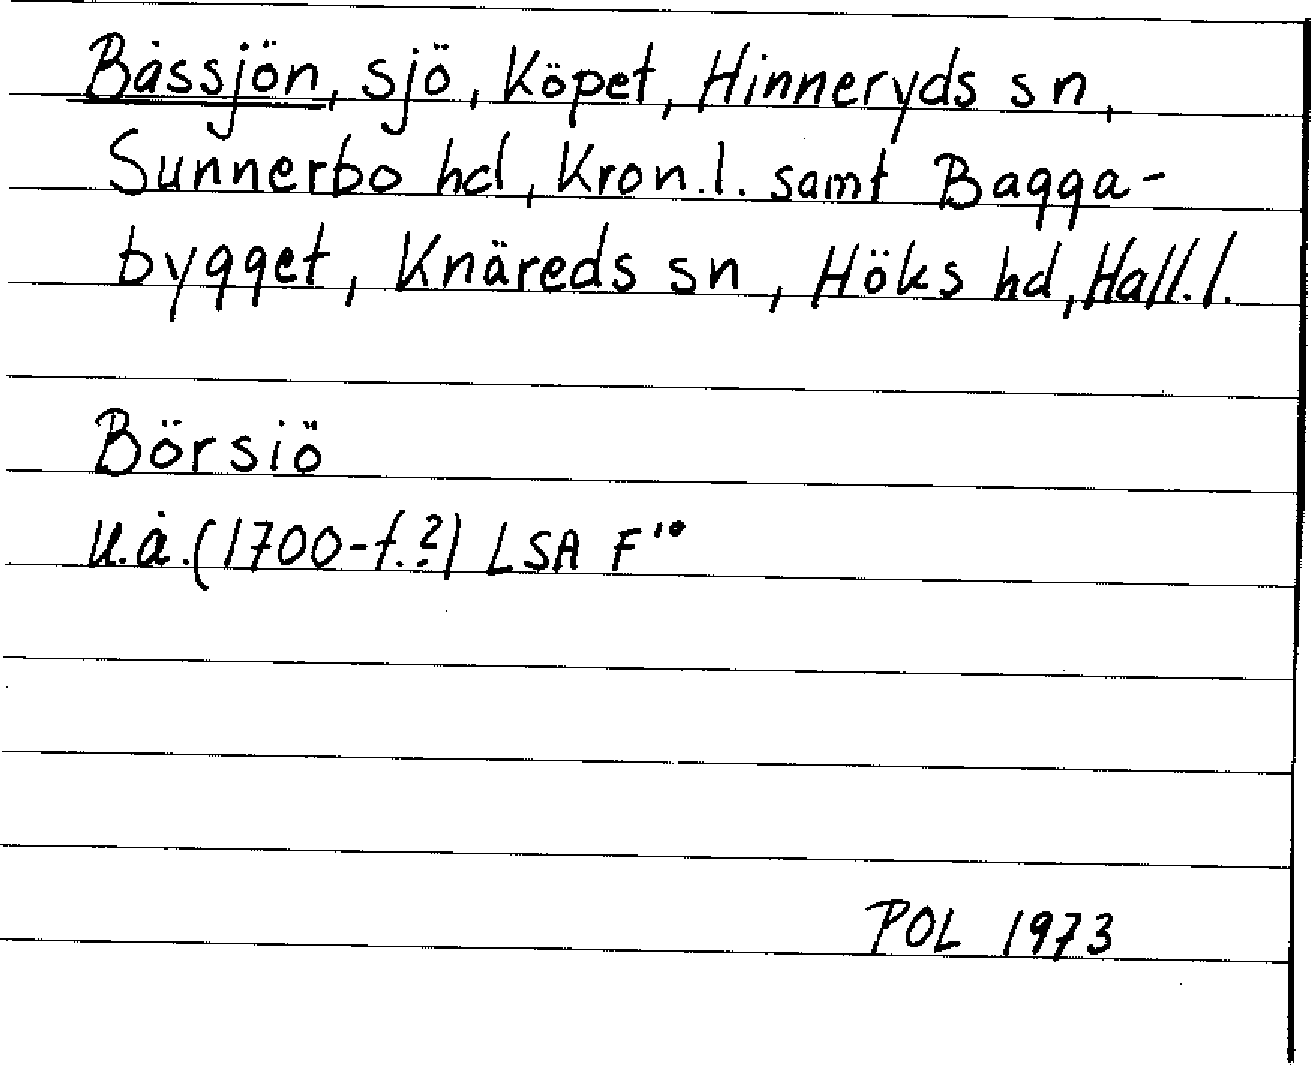 Båssjön, sjö, Köpet, Hinneryds sn,
Sunnerbo hd, Kron.l. samt Bagga-
bygget, Knäreds sn, Höks hd, Hall.l.
Börsiö
U.å. (1700-t.?) LSA F¹⁰
POL 1973